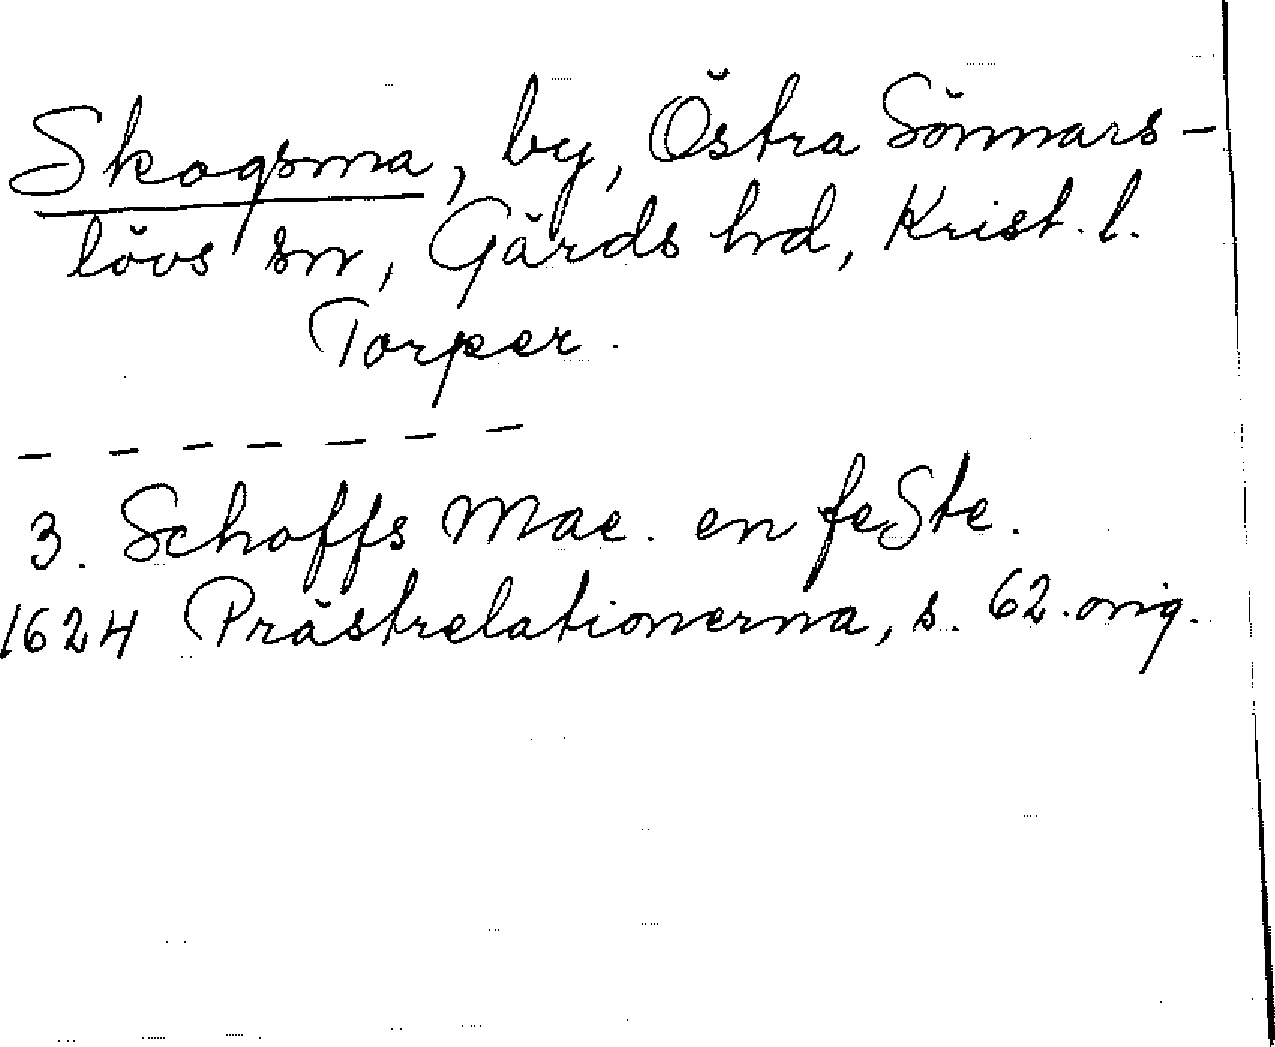 Skogsma, by, Östra Sönnars-
lövs sn, Gärds hd, Krist. l.
Torper.
- - - - - - -
3. Schoffs Mae. en feSte.
1624 Prästrelationerna, s. 62. orig.